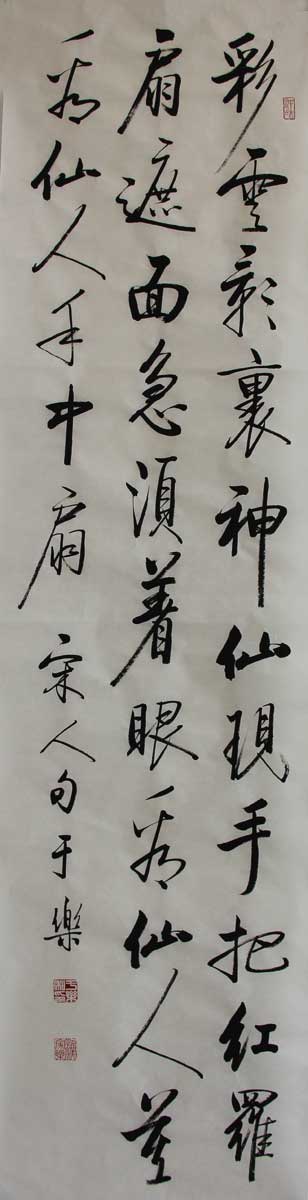 彩雲影裏神仙現手把紅羅
扇遮面急湏着眼看仙人莫
看仙人手中扇 宋人句于樂